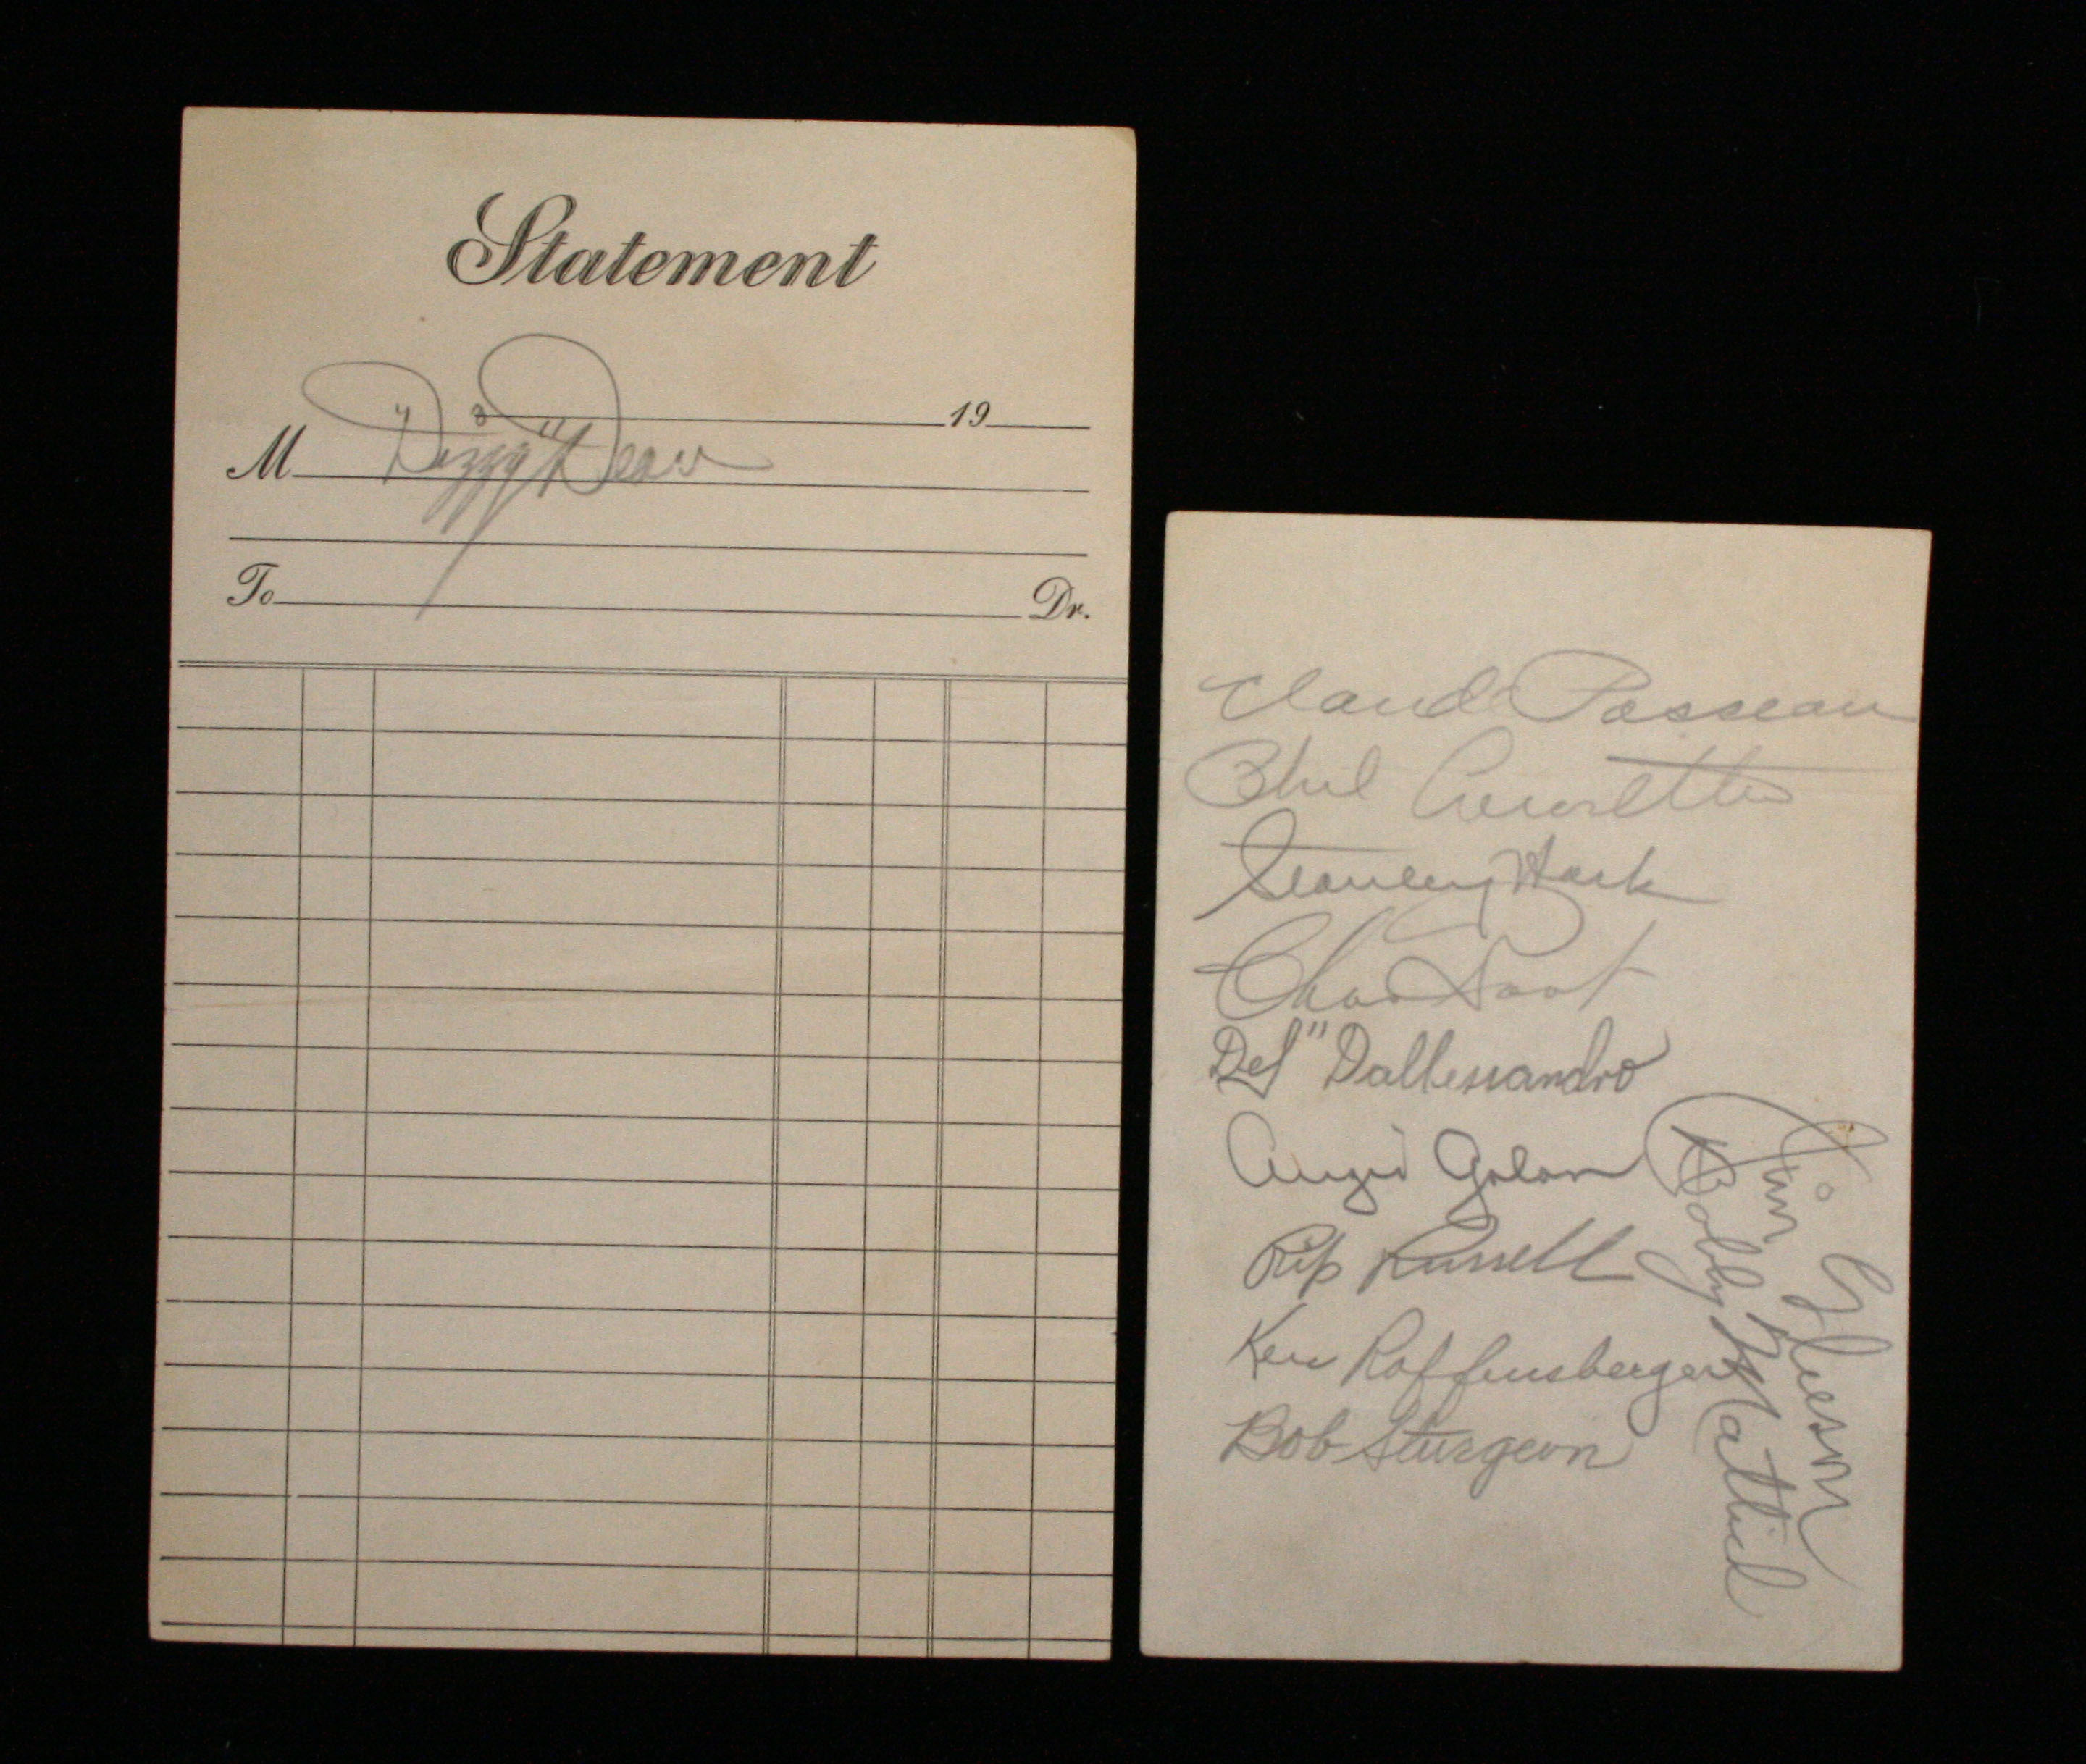 Statement
19
M "Dizzy" Dean
To Dr.
Claude Passeau
Phil Cavarretta
Stanley Hack
Chas Root
Del" Dallessandro
Augie Galan
Rip Russell
Ken Raffensberger
Bob Sturgeon
Jim Gleeson
Bobby Mattick